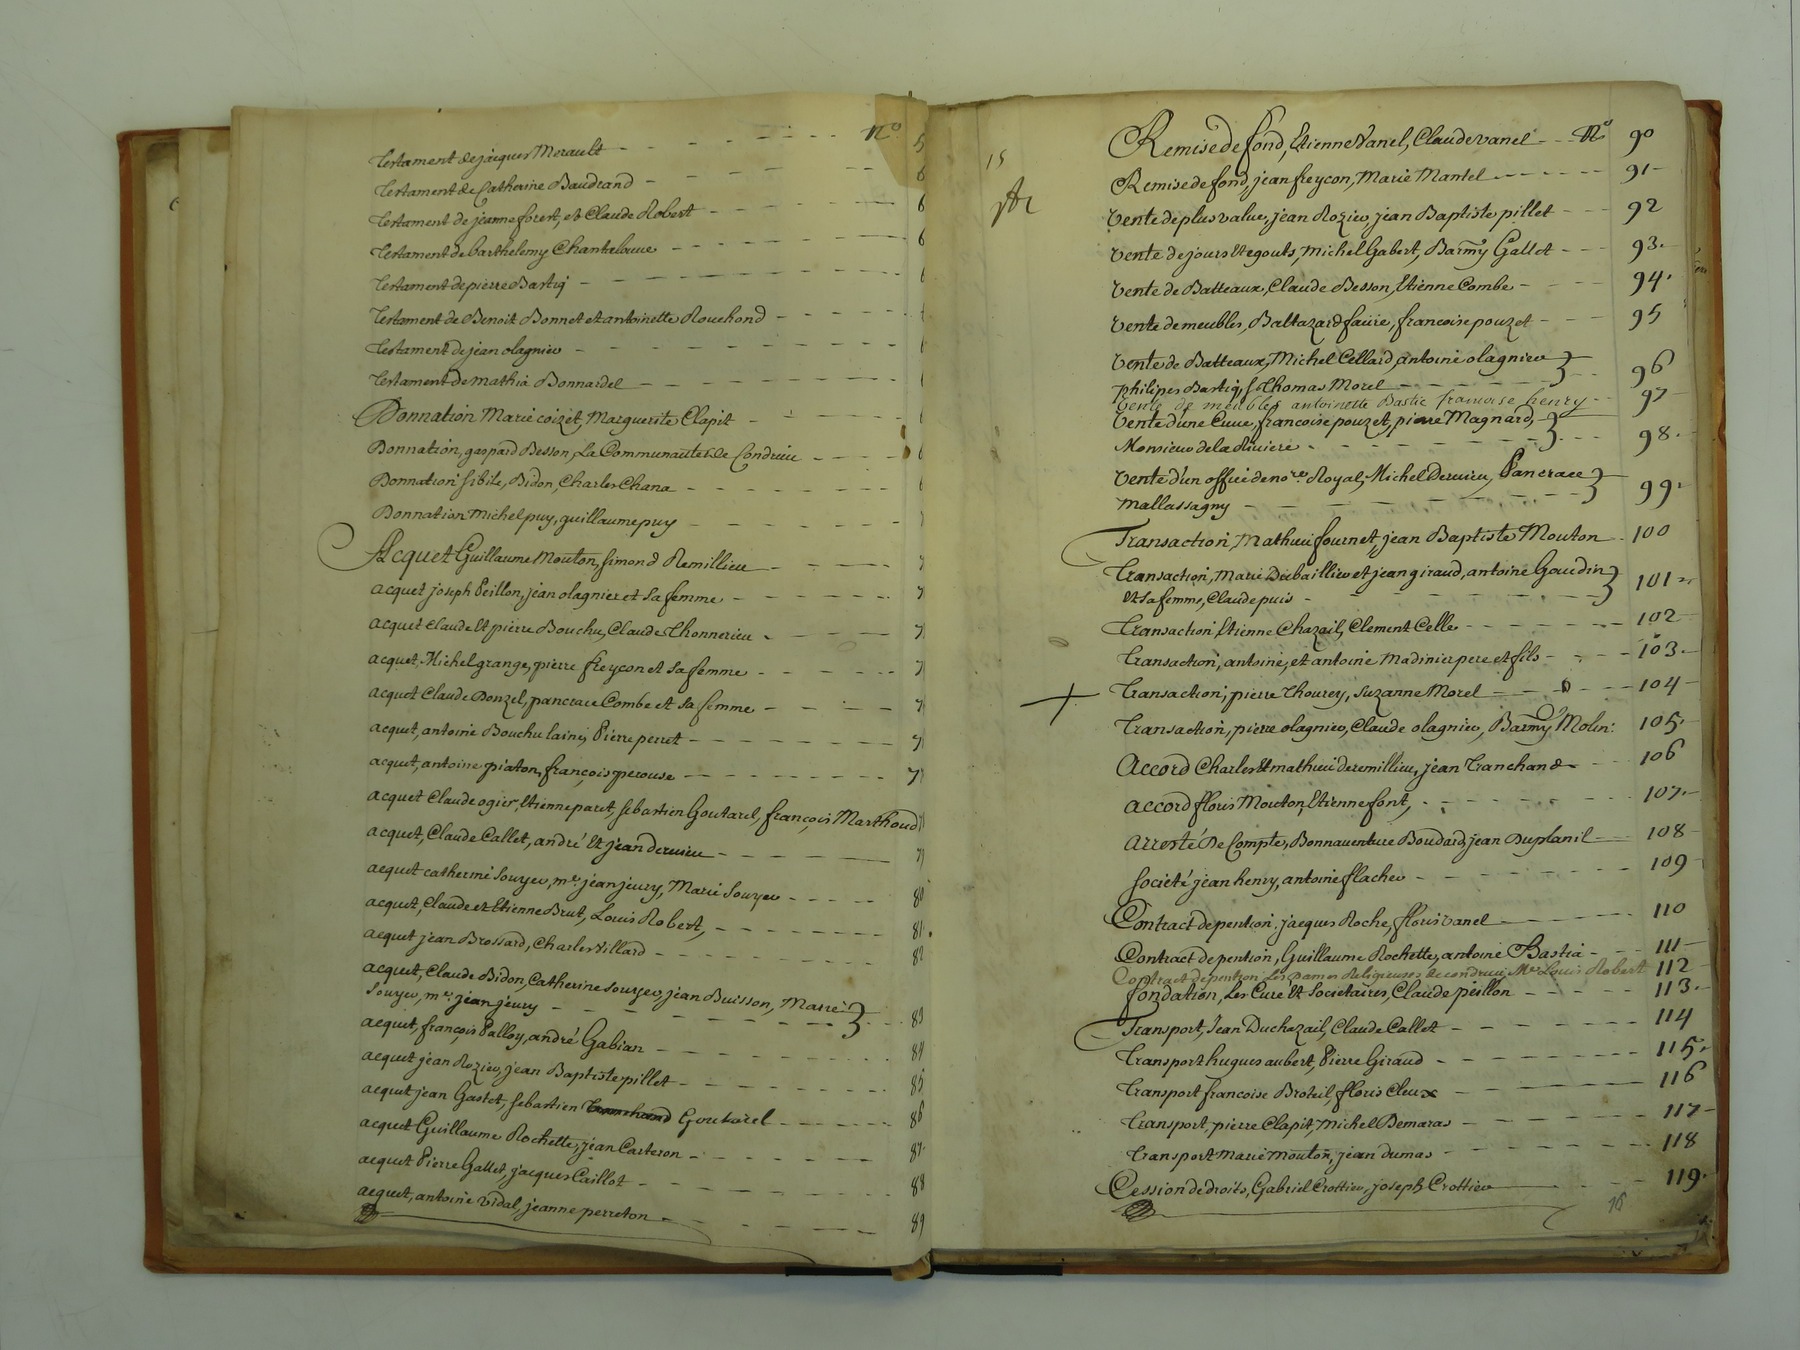 n.º 5
Testament de jacques Morault
Testament de Catherine Baudrand
Testament de jeanne forest, et Claude Robert 6
Testament de barthelemy Chantelouve 6
Testament de pierre Bastig
Testament de Benoit Bonnet et antoinette Rouchond
Testament de jean olagnier
Testament de mathia Bonnardel
Donnation Marie coizet, Marguerite Clapit
Donnation, gaspard Besson, La Communauté de Condrieu
Donnation sibile, Bidon, Charles Chana
Donnation Michel puy, guillaume puy
Acquet Guillaume Mouton, simond Remillieu 7
acquet joseph Peillon, jean olagnier et sa femme 7
acquet Claude Et pierre Bouchu, Claude Thonnerieu 7
acquet, Michel grange, pierre freycon et sa femme 7
acquet Claude Donzel, pancrace Combe et sa femme 7
acquet, antoine Bouchu laine, Pierre perret 7
acquet, antoine piaton, françois perouse 7
acquet Claude ogier, Etienne paret, sebastien Goutarel, françois Marthoud 7
acquet, Claude Callet, andré Et jean dervieu 7
acquet catherine souyer, m.e jean jeury, Marie souyer 80
acquet, Claude et Etienne Brut, Louis Robert, 81.
acquet jean Brossard, Charles Villard 82
acquet, Claude Bidon, Catherine souyer, jean Buisson, Marie
souyer, m.e jean jeury 83
acquet, françois Palloy, andré Gabian 84
acquet jean Rozier, jean Baptiste pillet 85
acquet jean Gastet, sebastien Goutarel 86
acquet Guillaume Rochette, jean Carteron 87.
acquet Pierre Gallet, jacques Caillot 88
acquet, antoine vidal, jeanne perreton 89
15
Remise de fond, Etienne Vanel, Claude vanel n.º 90
Remise de fond, jean freycon, Marie Mantel 91
Vente de plus value, jean Rozier, jean Baptiste pillet 92
Vente de jours Et egouts, Michel Gabert, Barmy Gallet 93.
Vente de Batteaux, Claude Besson, Etienne Combe 94.
Vente de meubles, Baltazard faure, francoise pouzet 95
Vente de Batteaux, Michel Cellard, antoine olagnier
philipes Bastig, Thomas Morel 96
Vente de meubles antoinette Bastie francoise henry 97
Vente d'une Cuve, francoise pouzet, pierre Magnard,
Monsieur de la Riviere 98.
Vente d'un office de no.re Royal, Michel Dervieu, Pancrace
Mallassagny 99.
Transaction, Mathieu fournet, jean Baptiste Mouton 100
Transaction, Marie Dubaillier et jean giraud, antoine Goudin
Et sa femme, Claude puis 101
Transaction, Etienne Chazail, Clement Celle 102
Transaction, antoine, et antoine Madinier pere et fils 103.
Transaction, pierre Thourey, suzanne Morel 104
Transaction, pierre olagnier, Claude olagnier, Barmy Molin: 105.
Accord Charles Et mathieu deremillieu, jean Tranchand 106
accord floris Mouton, Etienne font, 107.
arresté De Compte, Bonnaventure Boudard, jean Duplanil 108
societé jean henry, antoine flacher 109
Contract de pention, jacques Roche, floris vanel 110
Contract de pention, Guillaume Rochette, antoine Bastia 111
Contract de pention Les dames Religieuses de condrieu, M.re Louis Robert 112
fondation, Les Curé Et Societaires, Claude peillon 113.
Transport, Jean Duchazail, Claude Callet 114
Transport hugues aubert, Pierre Giraud 115.
Transport francoise Broteil, floris Cleux 116
Transport, pierre Clapit, Michel Demaras 117
Transport Marie Mouton, jean dumas 118
Cession de droits, Gabriel Crottier, joseph Crottier 119.
16